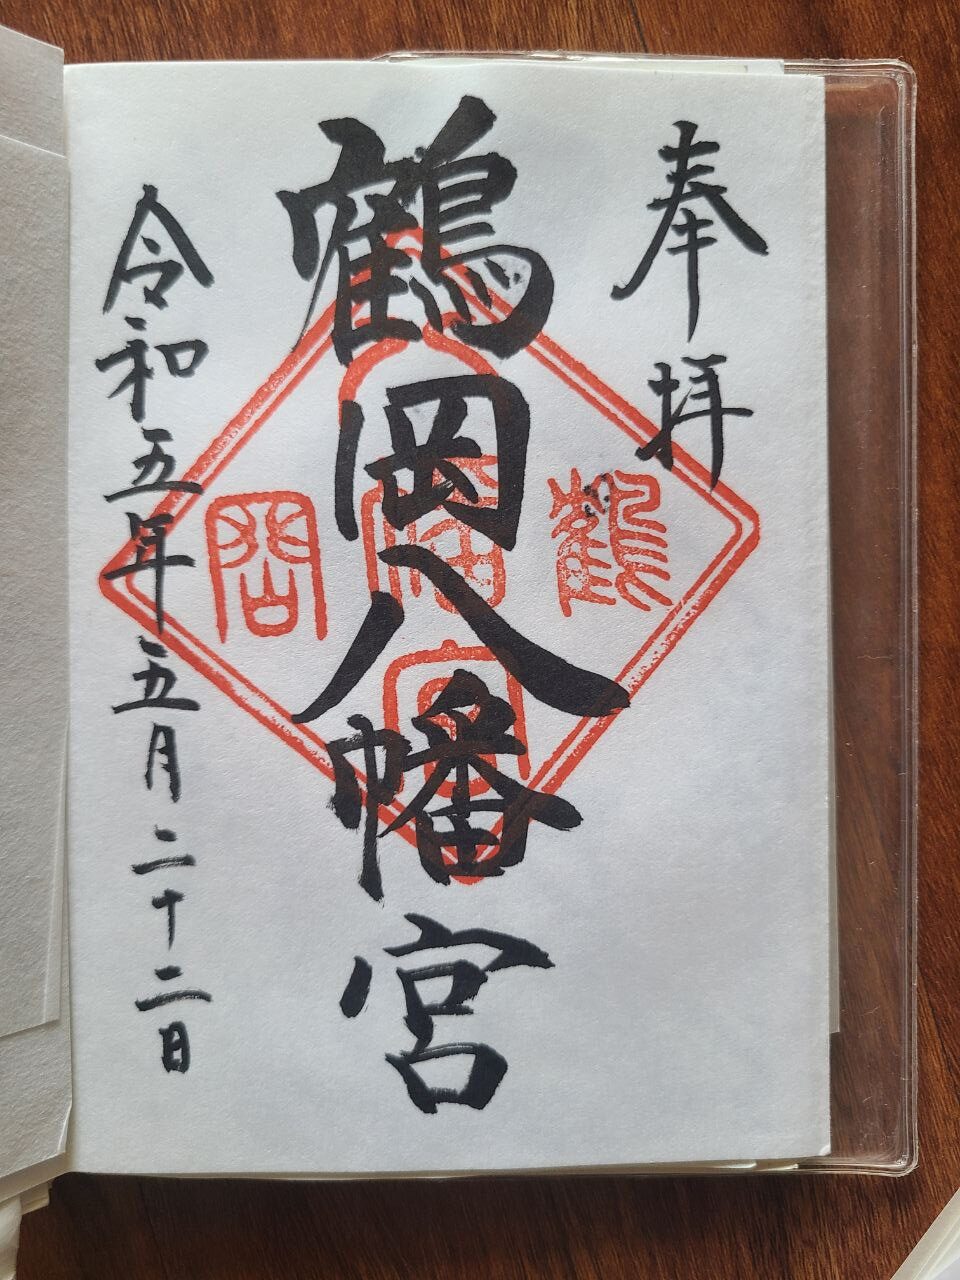 奉拝
鶴岡八幡宮
令和五年五月二十二日
鶴
岡
宮